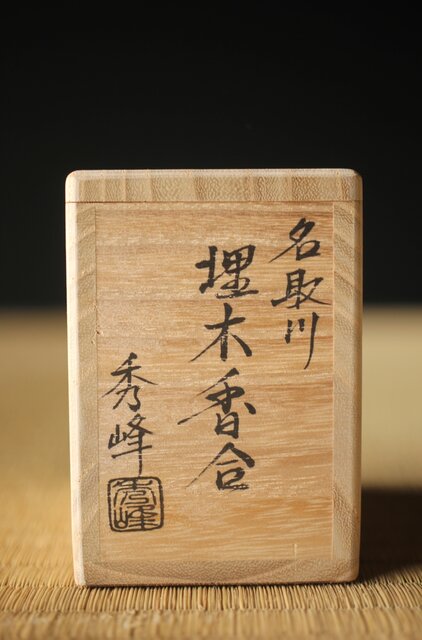 名取川
埋木香合
秀峰